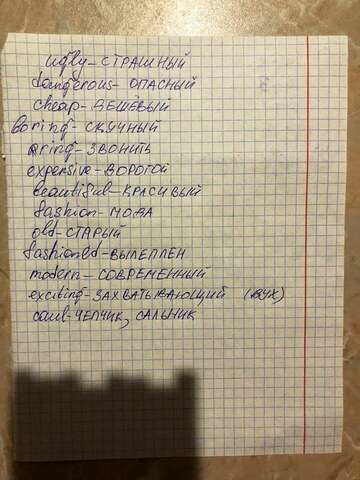 ugly-СТРАШНЫЙ
dangerous- ОПАСНЫЙ
cheap-ДЕШЁВЫЙ
boring-СКУЧНЫЙ
ring-ЗВОНИТЬ
expensive-ДОРОГОЙ
beautiful-КРАСИВЫЙ
fashion-МОДА
old-СТАРЫЙ
fashioned-ВЫЛЕПЛЕН
modern-СОВРЕМЕННЫЙ
exciting-ЗАХВАТЫВАЮЩИЙ (ДУХ)
caul-ЧЕПЧИК, САЛЬНИК